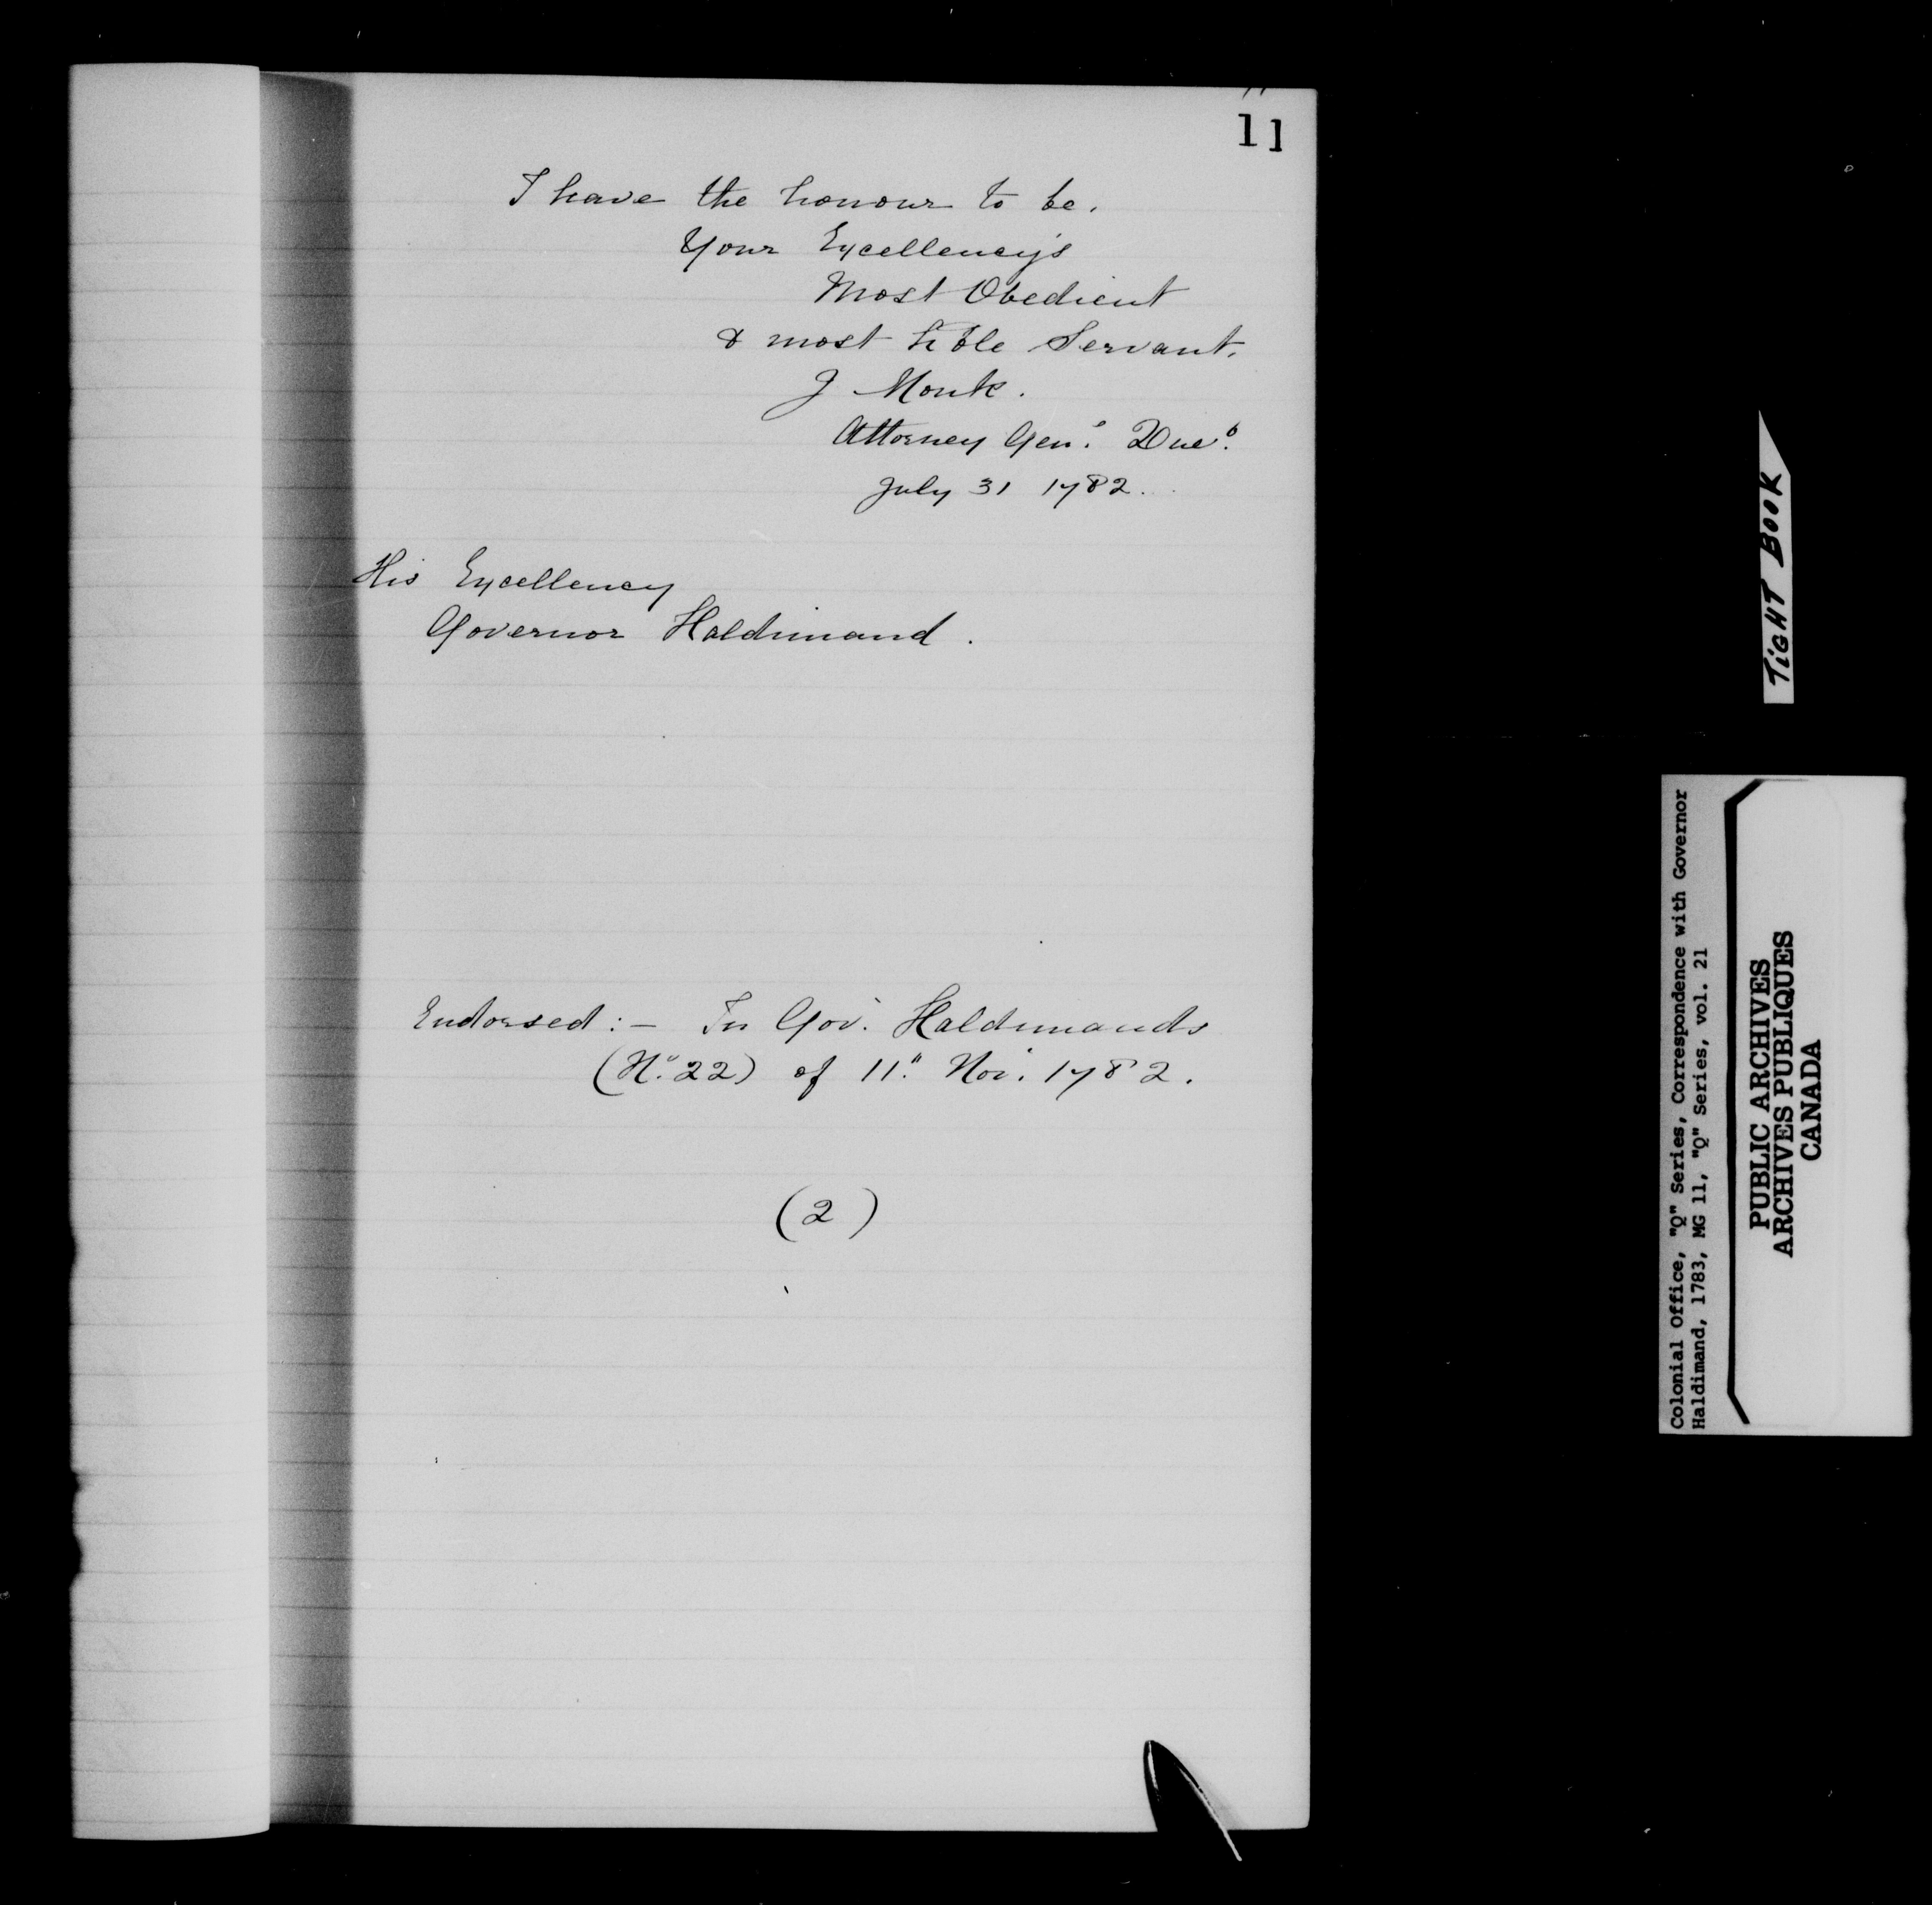 11
I have the honour to be.
Your Excellency's
Most Obedient
& most hble Servant.
J Monk.
Attorney Gen.
July 31 1782.
His Excellency
Governor Haldimand.
Endorsed:- In Gov. Haldimands
(No. 22) of 11." Nov. 1782.
(2)
TIGHT BOOK
Colonial Office, "Q" Series, Correspondence with Governor
Haldimand, 1783, MG 11, "Q" Series, vol. 21
PUBLIC ARCHIVES
ARCHIVES PUBLIQUES
CANADA